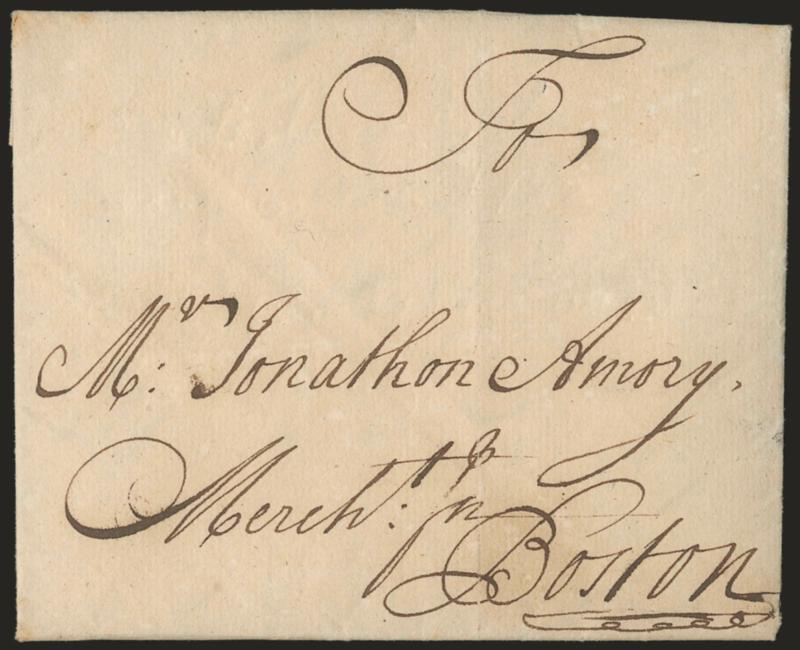 To
Mr: Jonathon Amory.
Mercht: in
Boston